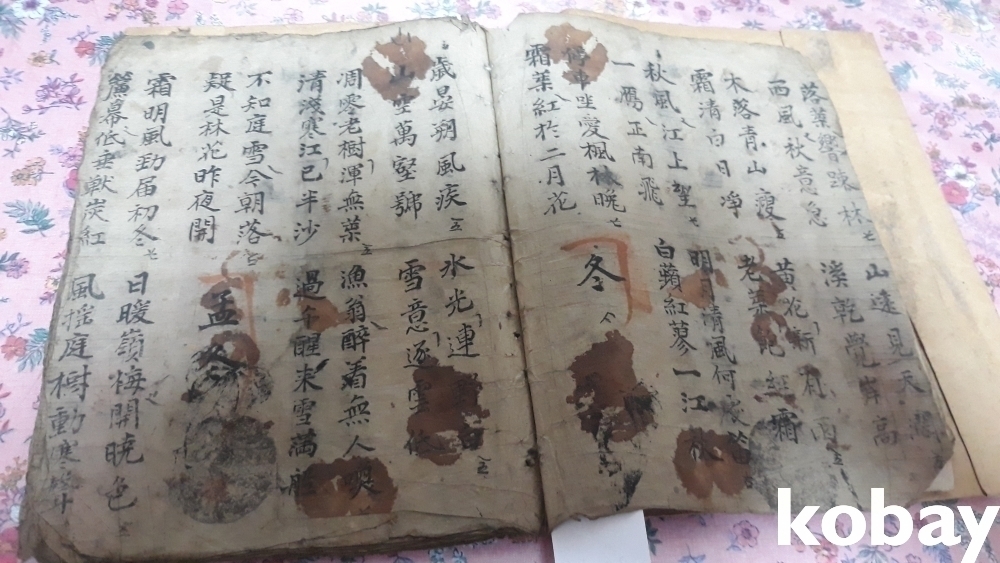 落葉聲踈林 七 山遠見天濶
西風秋意急 溪乾覺岸高
木落青山瘦 五 黃花新雨
霜清白日凈 老葉飽經霜
秋風江上望 七 明月清風何處
一鴈正南飛 白蘋紅蓼一江秋
停車坐愛楓林晚 七 冬
霜葉紅於二月花
歲晏朔風疾 五 氷光連野白 五
山空萬壑號 雪意逐雲
凋零老樹渾無葉 七 漁翁醉着無人喚
清淺寒江已半沙 過午醒来雪滿舡
不知庭雪今朝落 七 孟冬
疑是林花昨夜開
霜明風勁届初冬 七 日暖嶺梅開曉色
簾幕低垂獸炭紅 風搖庭樹動寒
kobay